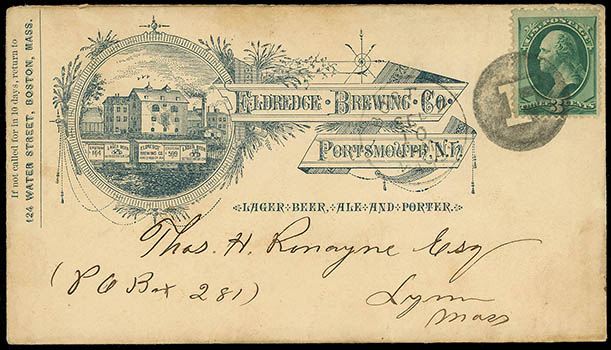 If not called for in 10 days, return to
124 WATER STREET, BOSTON, MASS.
U.S. POSTAGE
THREE 3 CENTS
ELDREDGE · BREWING · CO.
PORTSMOUTH, N.H.
LAGER·BEER,·ALE·AND·PORTER.
Thos. H. Ronayne Esq
(P O Box 281)
Lynn
Mass